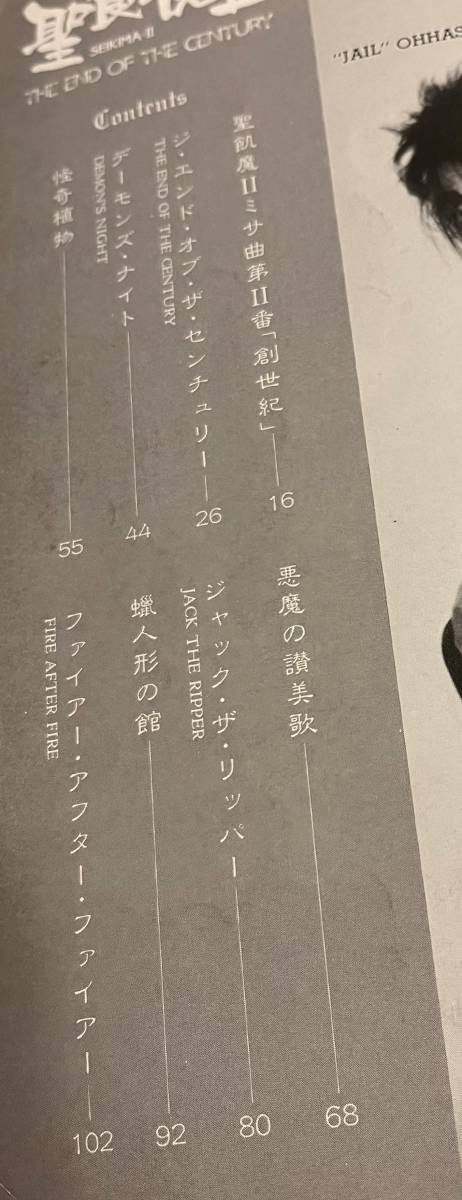 SEIKIMA-II
THE END OF THE CENTURY
"JAIL" OHHAS
Contents
聖飢魔II ミサ曲第II番「創世紀」 16
ジ・エンド・オブ・ザ・センチュリー 26
THE END OF THE CENTURY
デーモンズ・ナイト 44
DEMON'S NIGHT
怪奇植物 55
悪魔の讃美歌 68
ジャック・ザ・リッパー 80
JACK THE RIPPER
蠟人形の館 92
ファイアー・アフター・ファイアー 102
FIRE AFTER FIRE